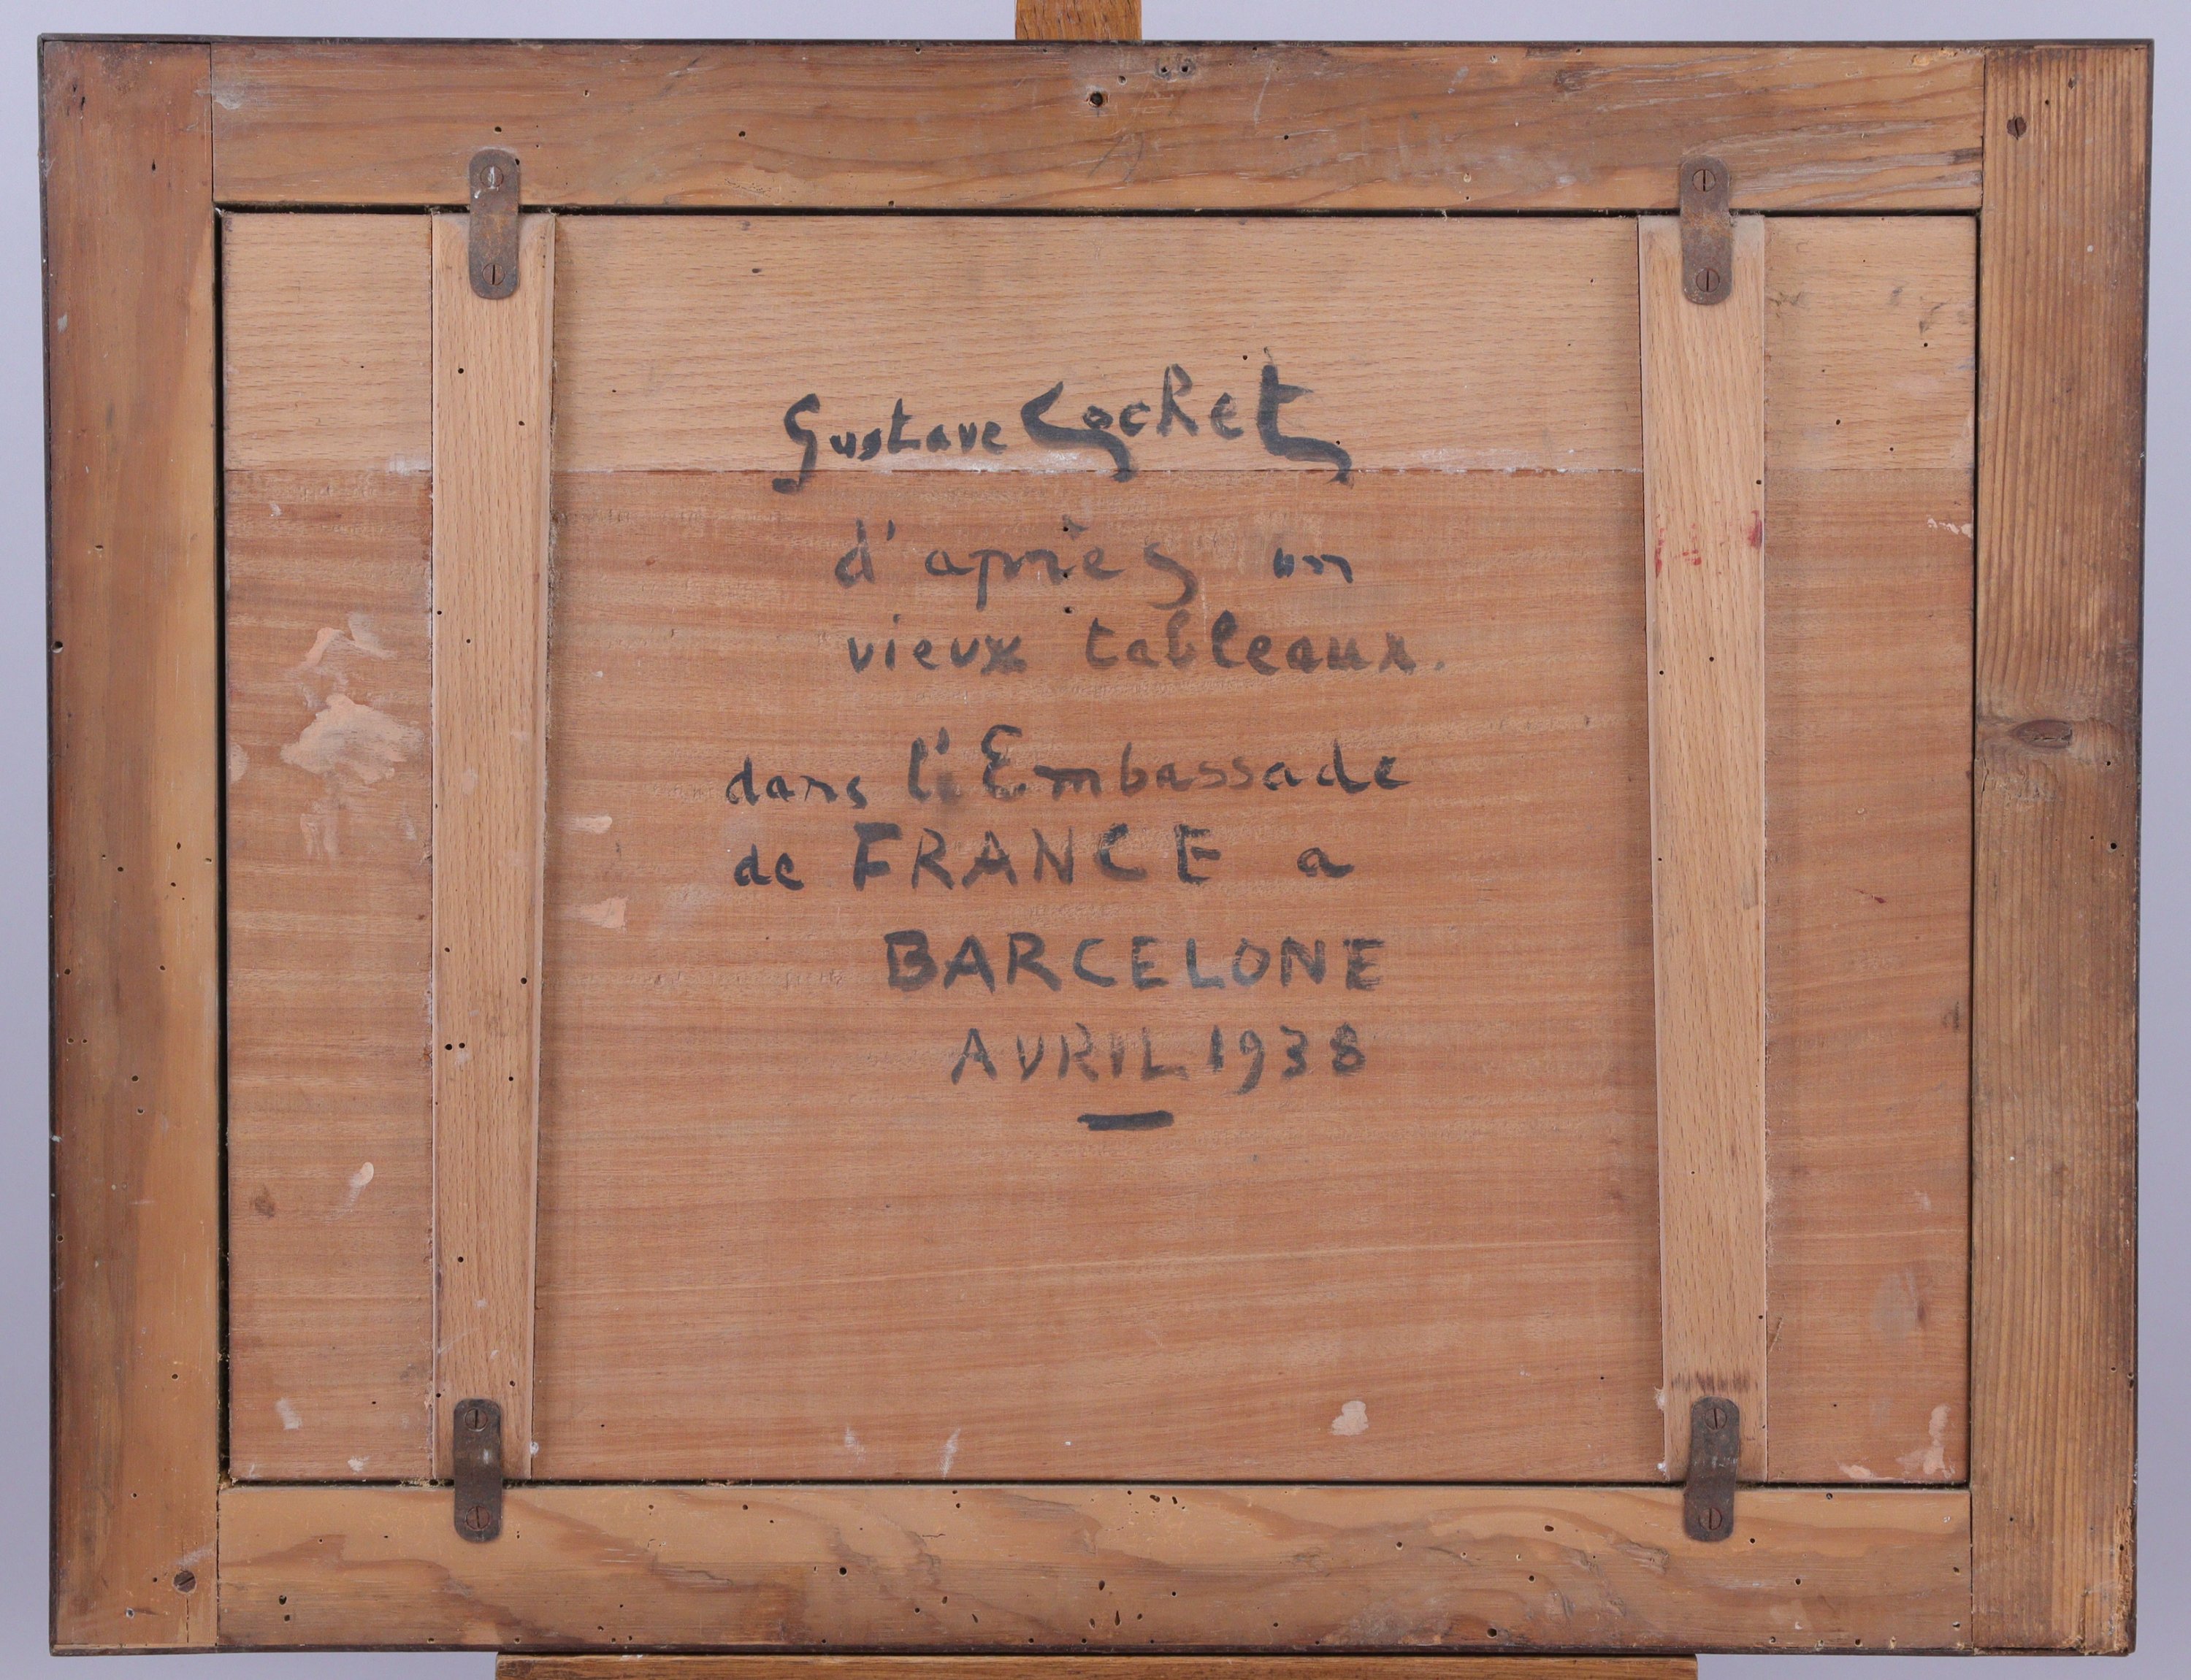 Gustave Cochet
d'après un
vieux tableaux.
dans l'Embassade
de FRANCE a
BARCELONE
AVRIL 1938